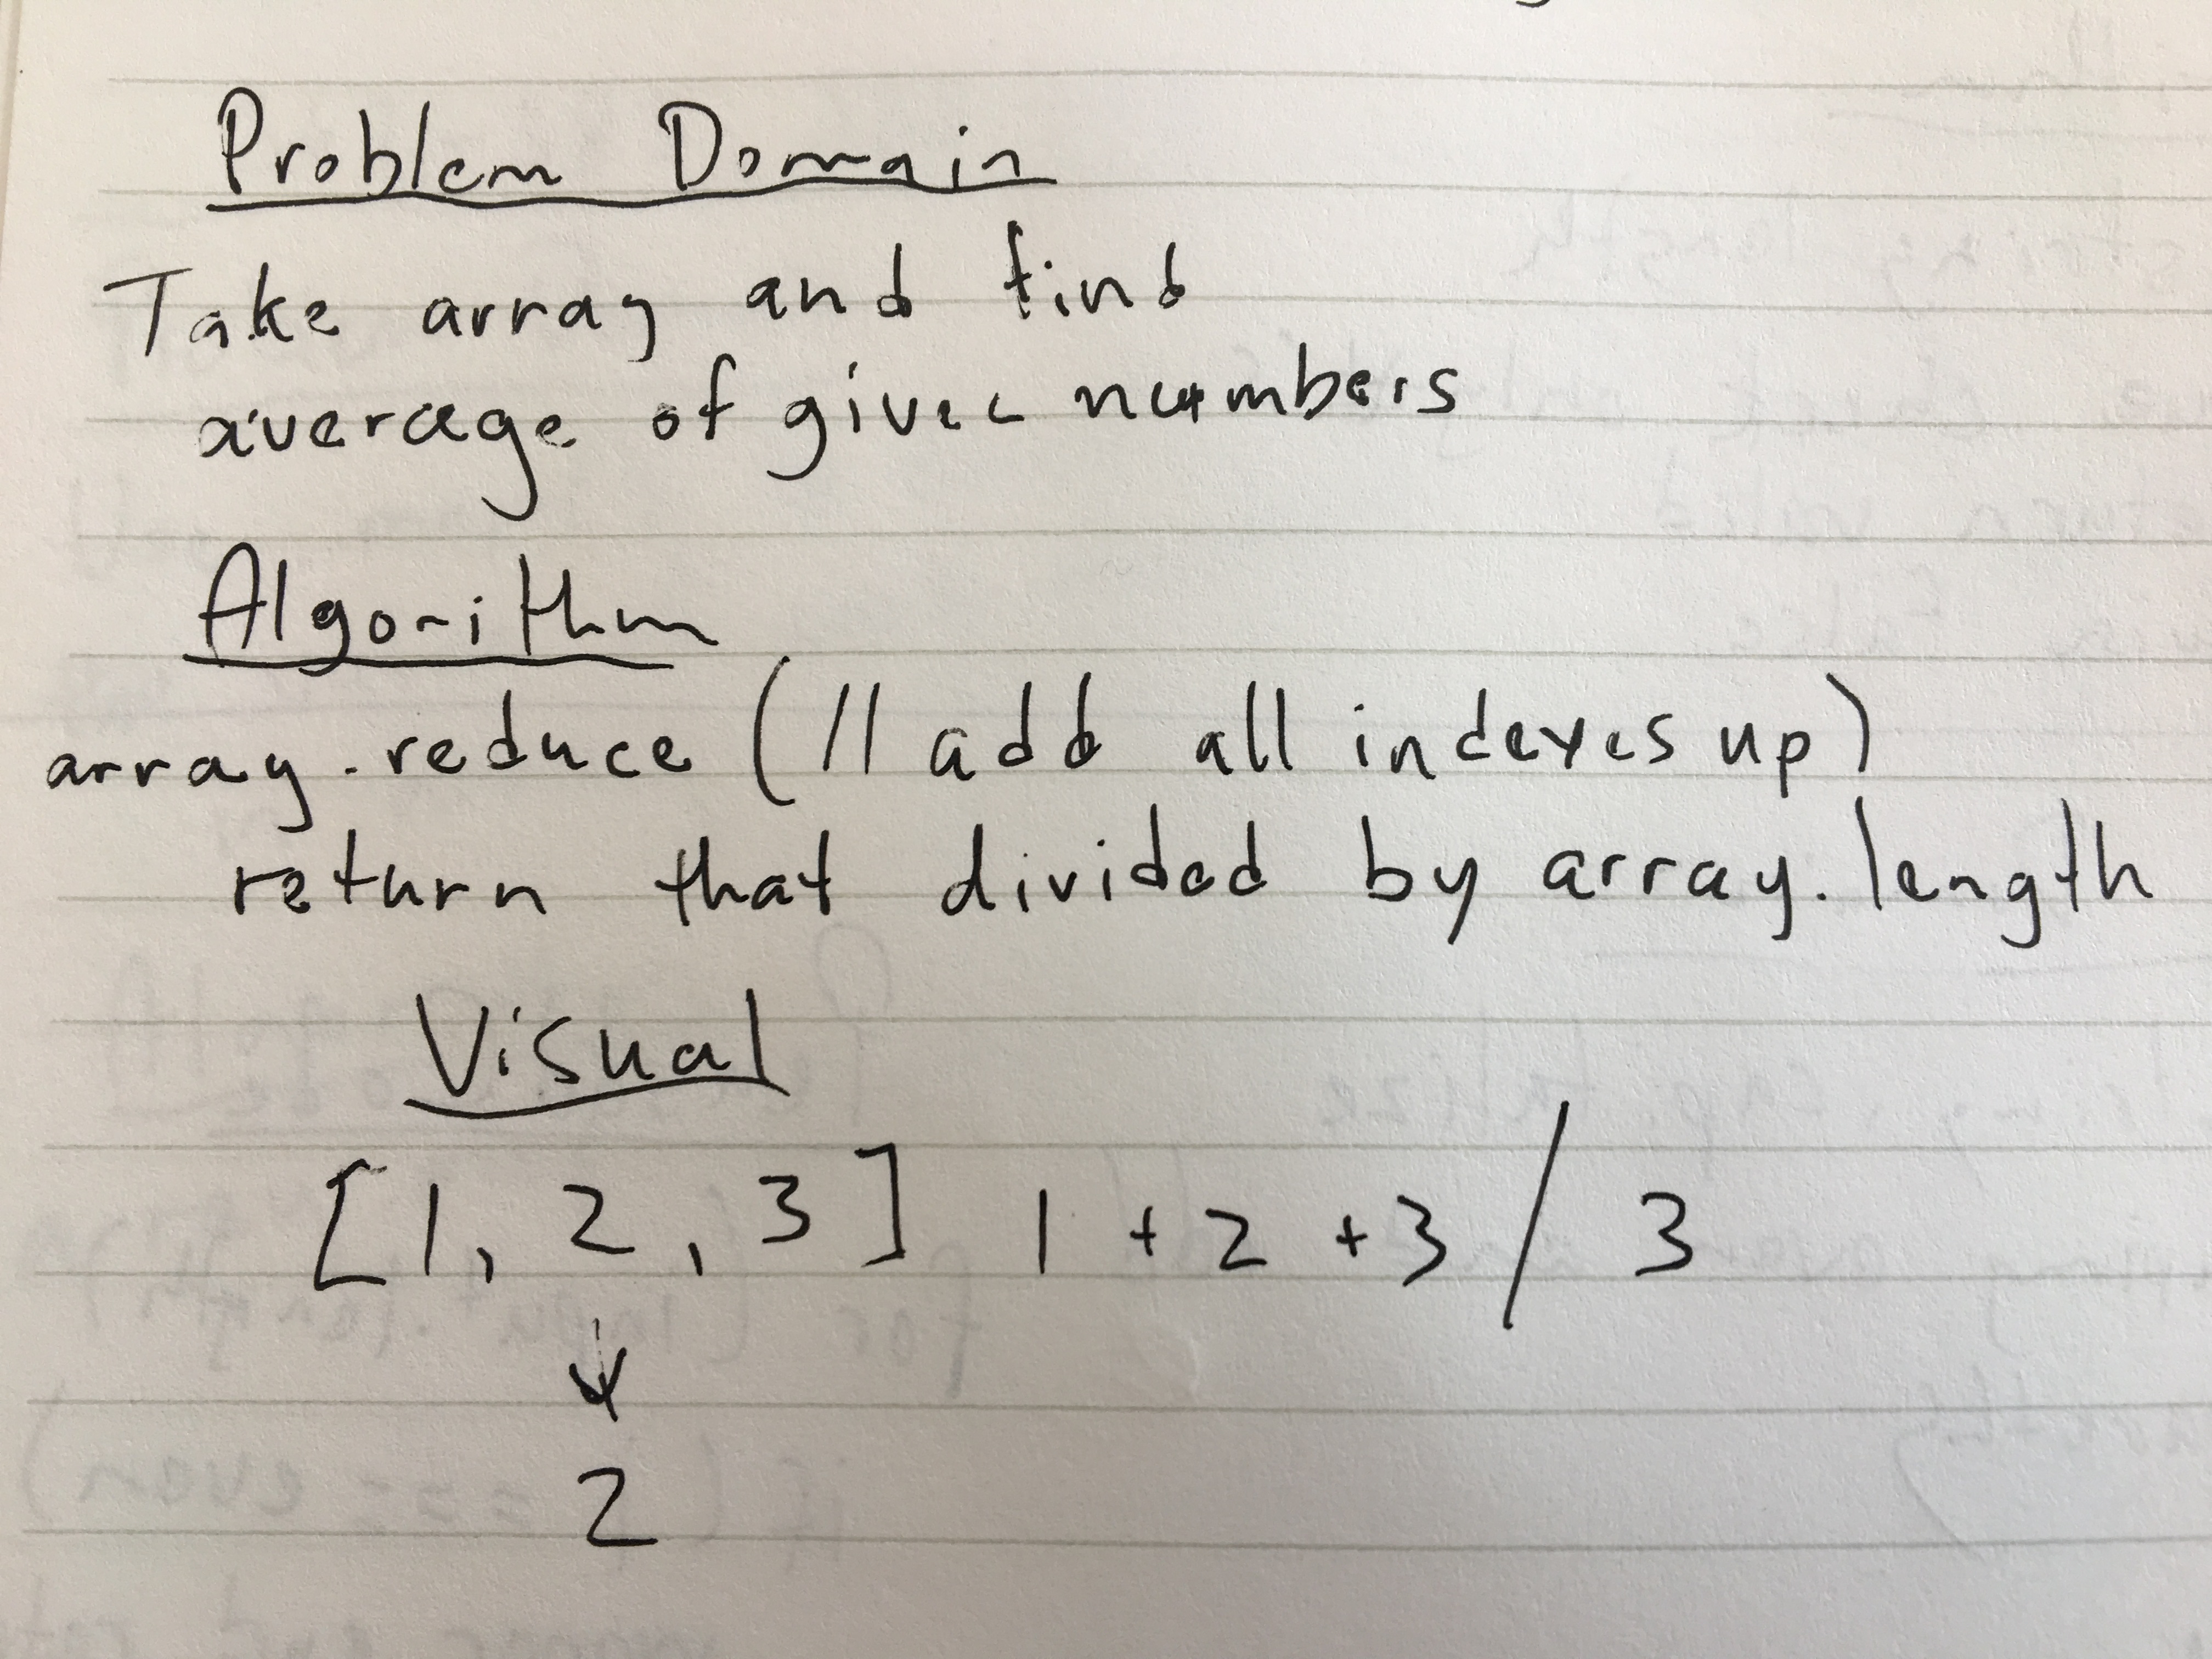 Problem Domain
Take array and find
average of given numbers
Algorithm
array.reduce (// add all indexes up)
return that divided by array.length
Visual
[1, 2, 3] 1 + 2 + 3 / 3
↓
2